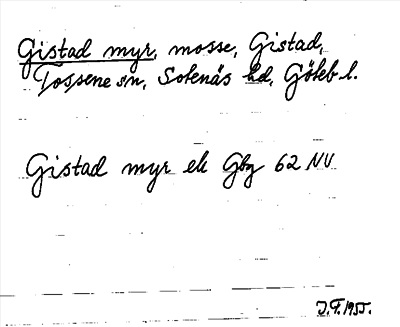 Gistad myr, mosse, Gistad,
Tossene sn, Sotenäs hd, Göteb l.
Gistad myr ek Gbg 62 NV
J.F. 1955.